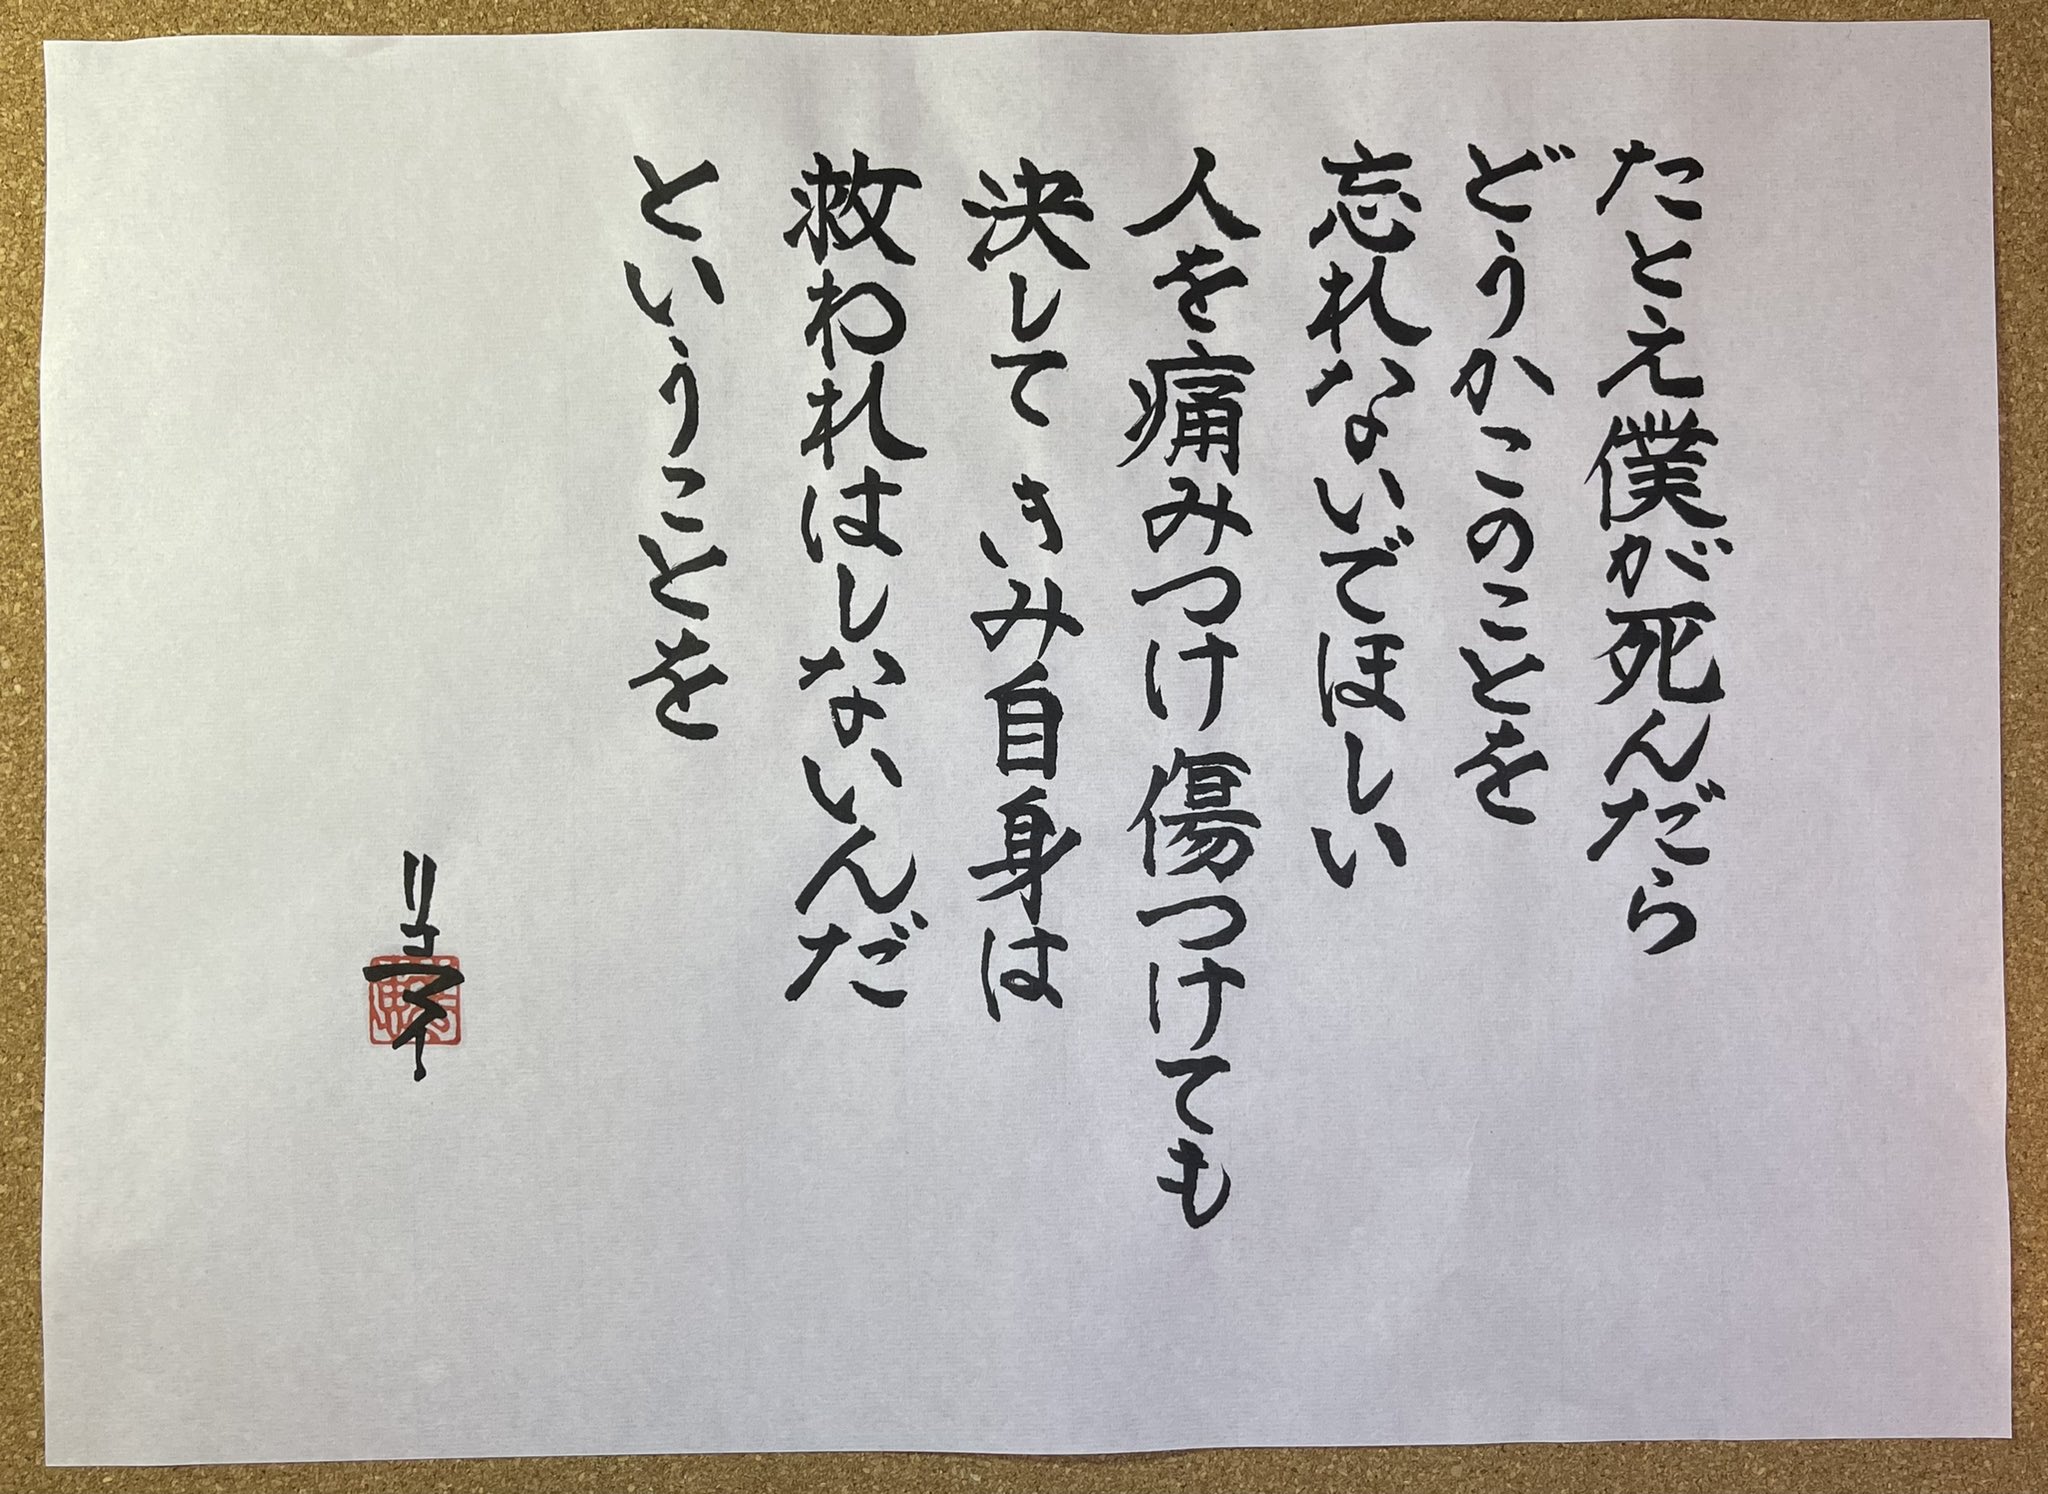 たとえ僕が死んだら
どうかこのことを
忘れないでほしい
人を痛みつけ傷つけても
決して きみ自身は
救われはしないんだ
ということを